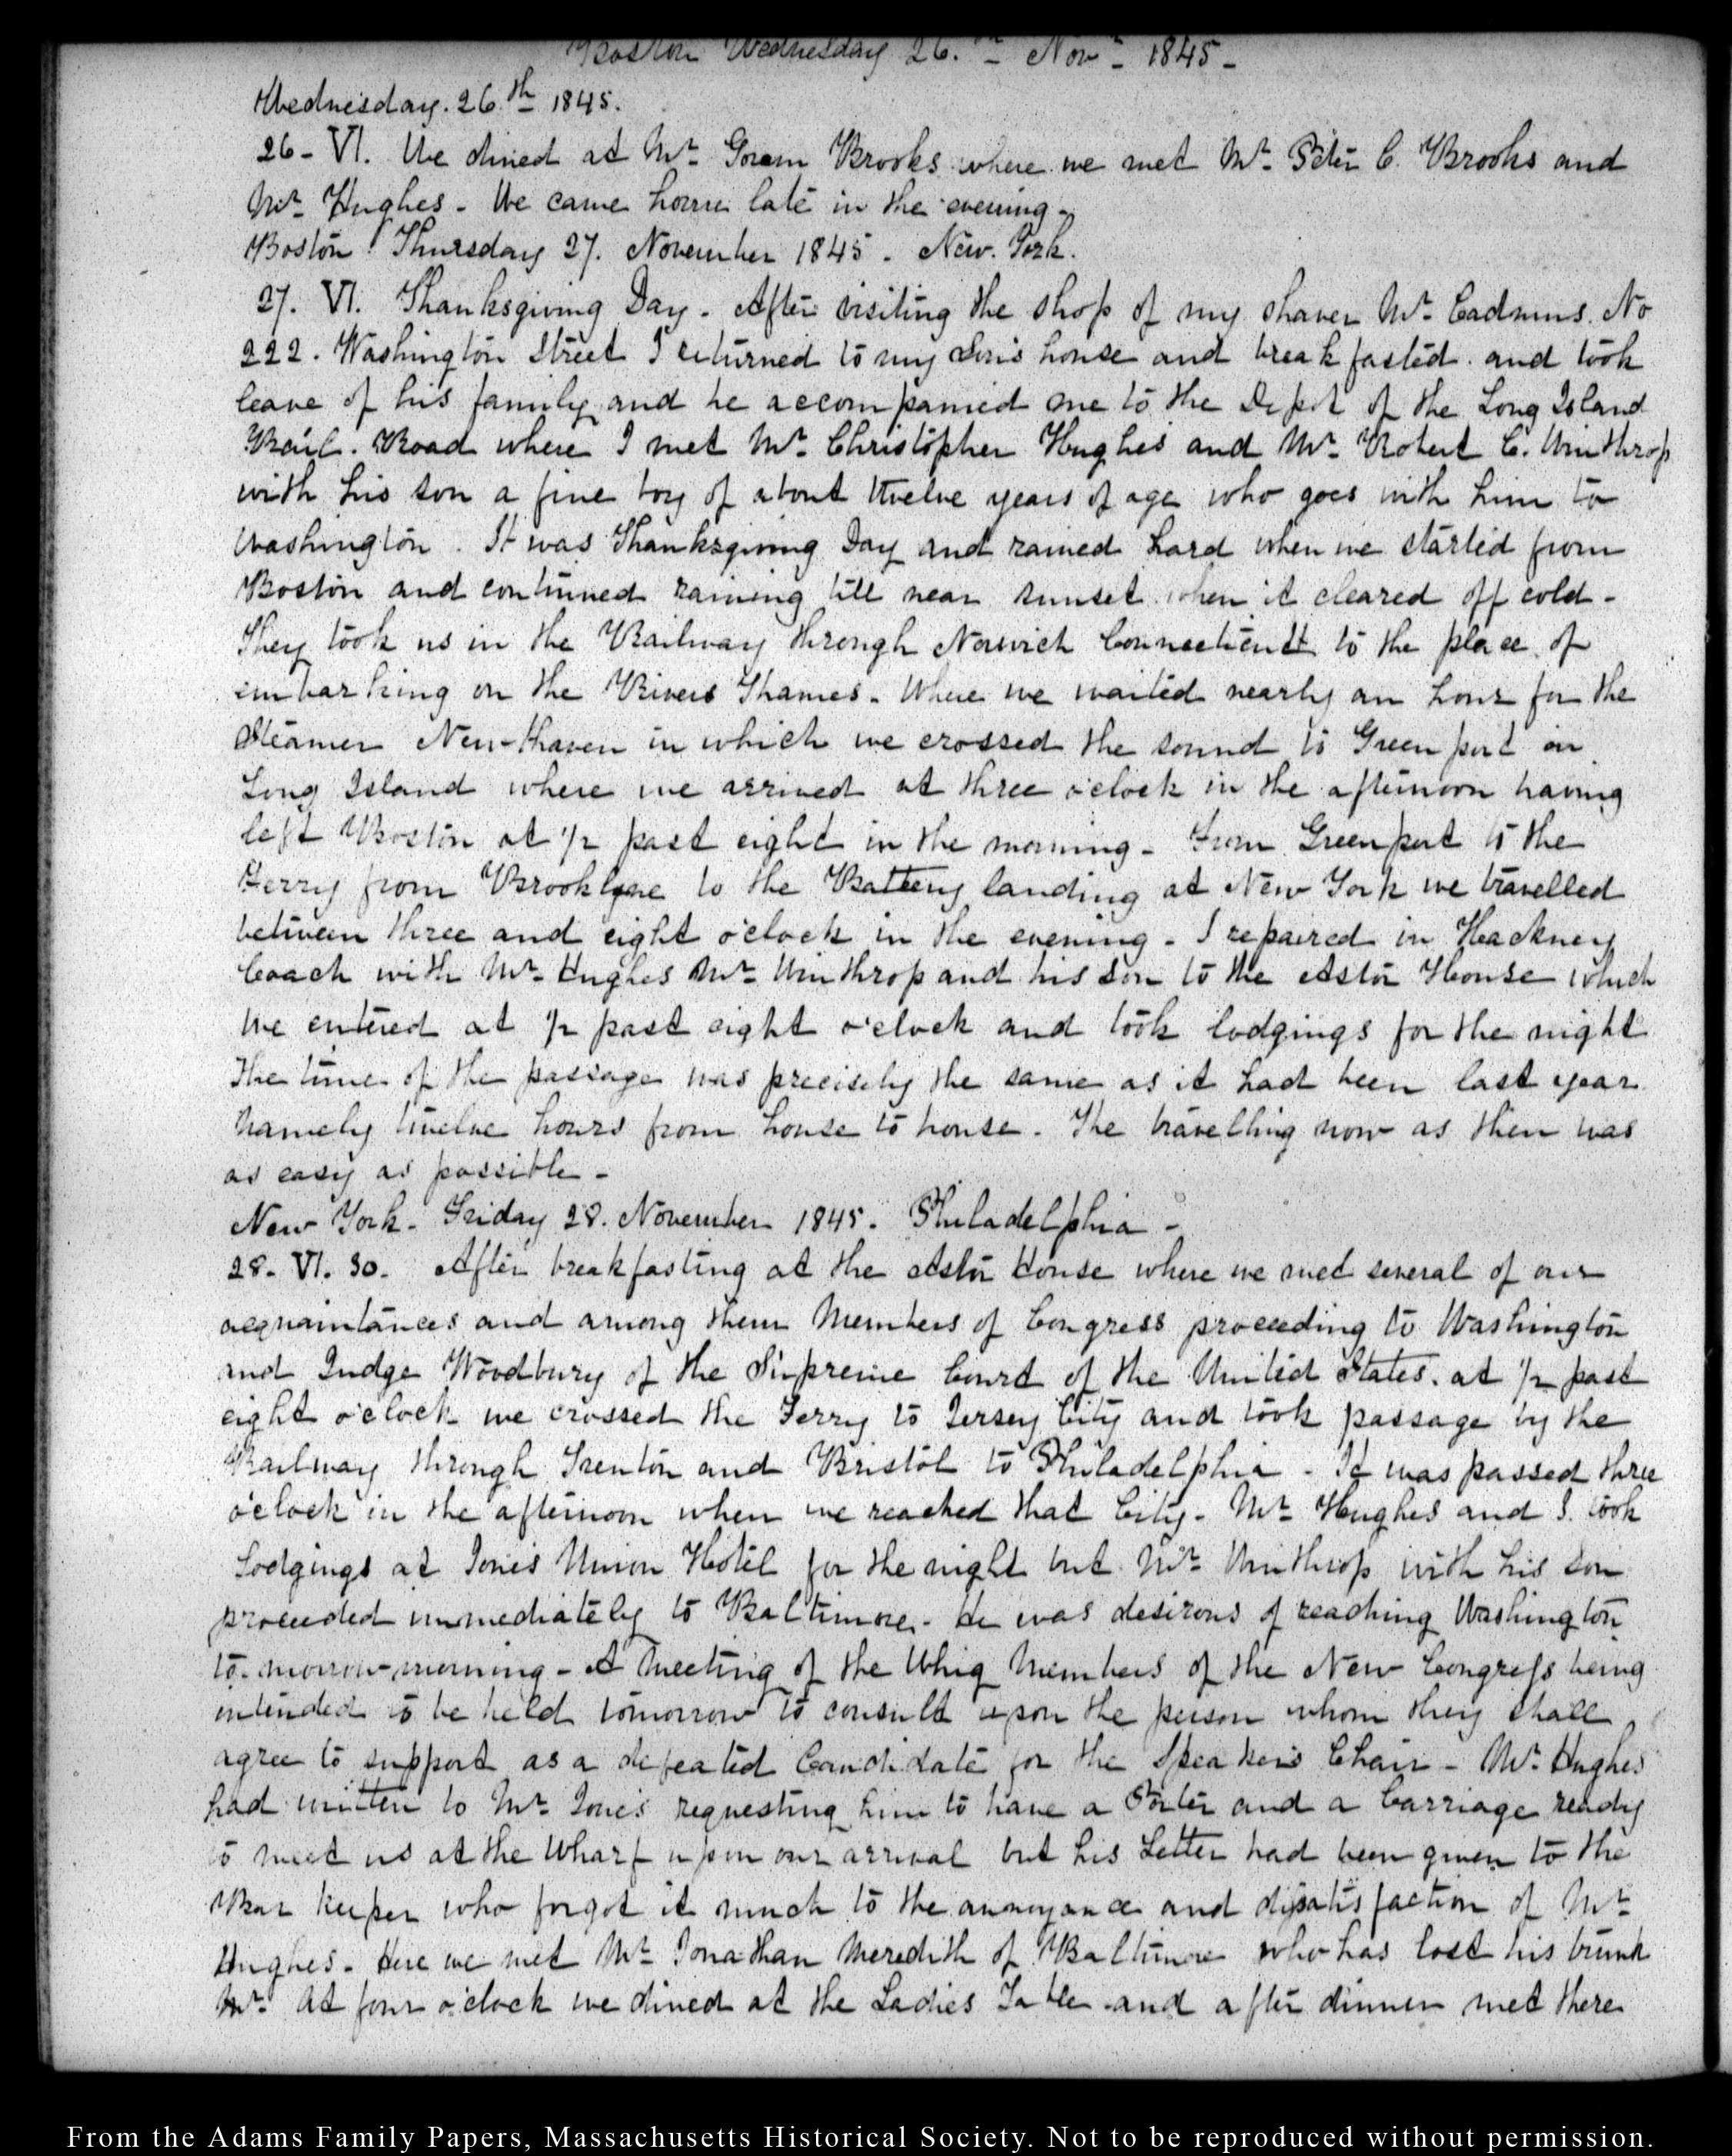 Boston Wednesday 26.th Novr 1845-
Wednesday. 26.th 1845.
26- VI. We dined at Mr Goram Brooks where we met Mr Peter C. Brooks and
Mr Hughes - We came home late in the evening-
Boston Thursday 27. November 1845. New. York.
27. VI. Thanksgiving Day. After visiting the shop of my shaver Mr Cadmus. No
222. Washington Street I returned to my Son's house and breakfasted. and took
leave of his family and he accompanied me to the Depot of the Long Island
Rail. Road where I met Mr Christopher Hughes and Mr Robert C. Winthrop
with his son a fine boy of about twelve years of age who goes with him to
Washington. It was Thanksgiving Day and rained hard when we started from
Boston and continued raining till near sunset when it cleared off cold-
They took us in the Railway through Norwich Connecticutt to the place of
embarking on the Rivers Thames. Where we waited nearly an hour for the
Steamer New-haven in which we crossed the sound to Greenport on
Long Island where we arrived at three o'clock in the afternoon having
left Boston at 1/2 past eight in the morning- From Greenport to the
Ferry from Brooklyne to the Battery landing at New York we travelled
between three and eight o'clock in the evening- I repaired in Hackney
Coach with Mr Hughes Mr Winthrop and his son to the Astor House which
we entered at 1/2 past eight o'clock and took lodgings for the night
The time of the passage was precisely the same as it had been last year
namely twelve hours from house to house. The travelling now as then was
as easy as possible-
New York- Friday 28. November 1845. Philadelphia-
28. VI. 30. After breakfasting at the Astor House where we met several of our
acquaintances and among them Members of Congress proceeding to Washington
and Judge Woodbury of the Supreme Court of the United States. at 1/2 past
eight o'clock we crossed the Ferry to Jersey City and took passage by the
Railway through Trenton and Bristol to Philadelphia- It was passed three
o'clock in the afternoon when we reached that City- Mr Hughes and I. took
Lodgings at Jones Union Hotel for the night but Mr Winthrop with his son
proceeded immediately to Baltimore- He was desirous of reaching Washington
to-morrow-morning- A Meeting of the Whig Members of the New Congress being
intended to be held tomorrow to consult upon the person whom they shall
agree to support as a defeated Candidate for the Speaker's Chair- Mr Hughes
had written to Mr Jones requesting him to have a Porter and a Carriage ready
to meet us at the Wharf upon our arrival but his Letter had been given to the
Bar keeper who forgot it much to the annoyance and disatisfaction of Mr
Hughes. Here we met Mr Jonathan Meredith of Baltimore who has lost his trunk
Mr At four o'clock we dined at the Ladies Table and after dinner met there
From the Adams Family Papers, Massachusetts Historical Society. Not to be reproduced without permission.